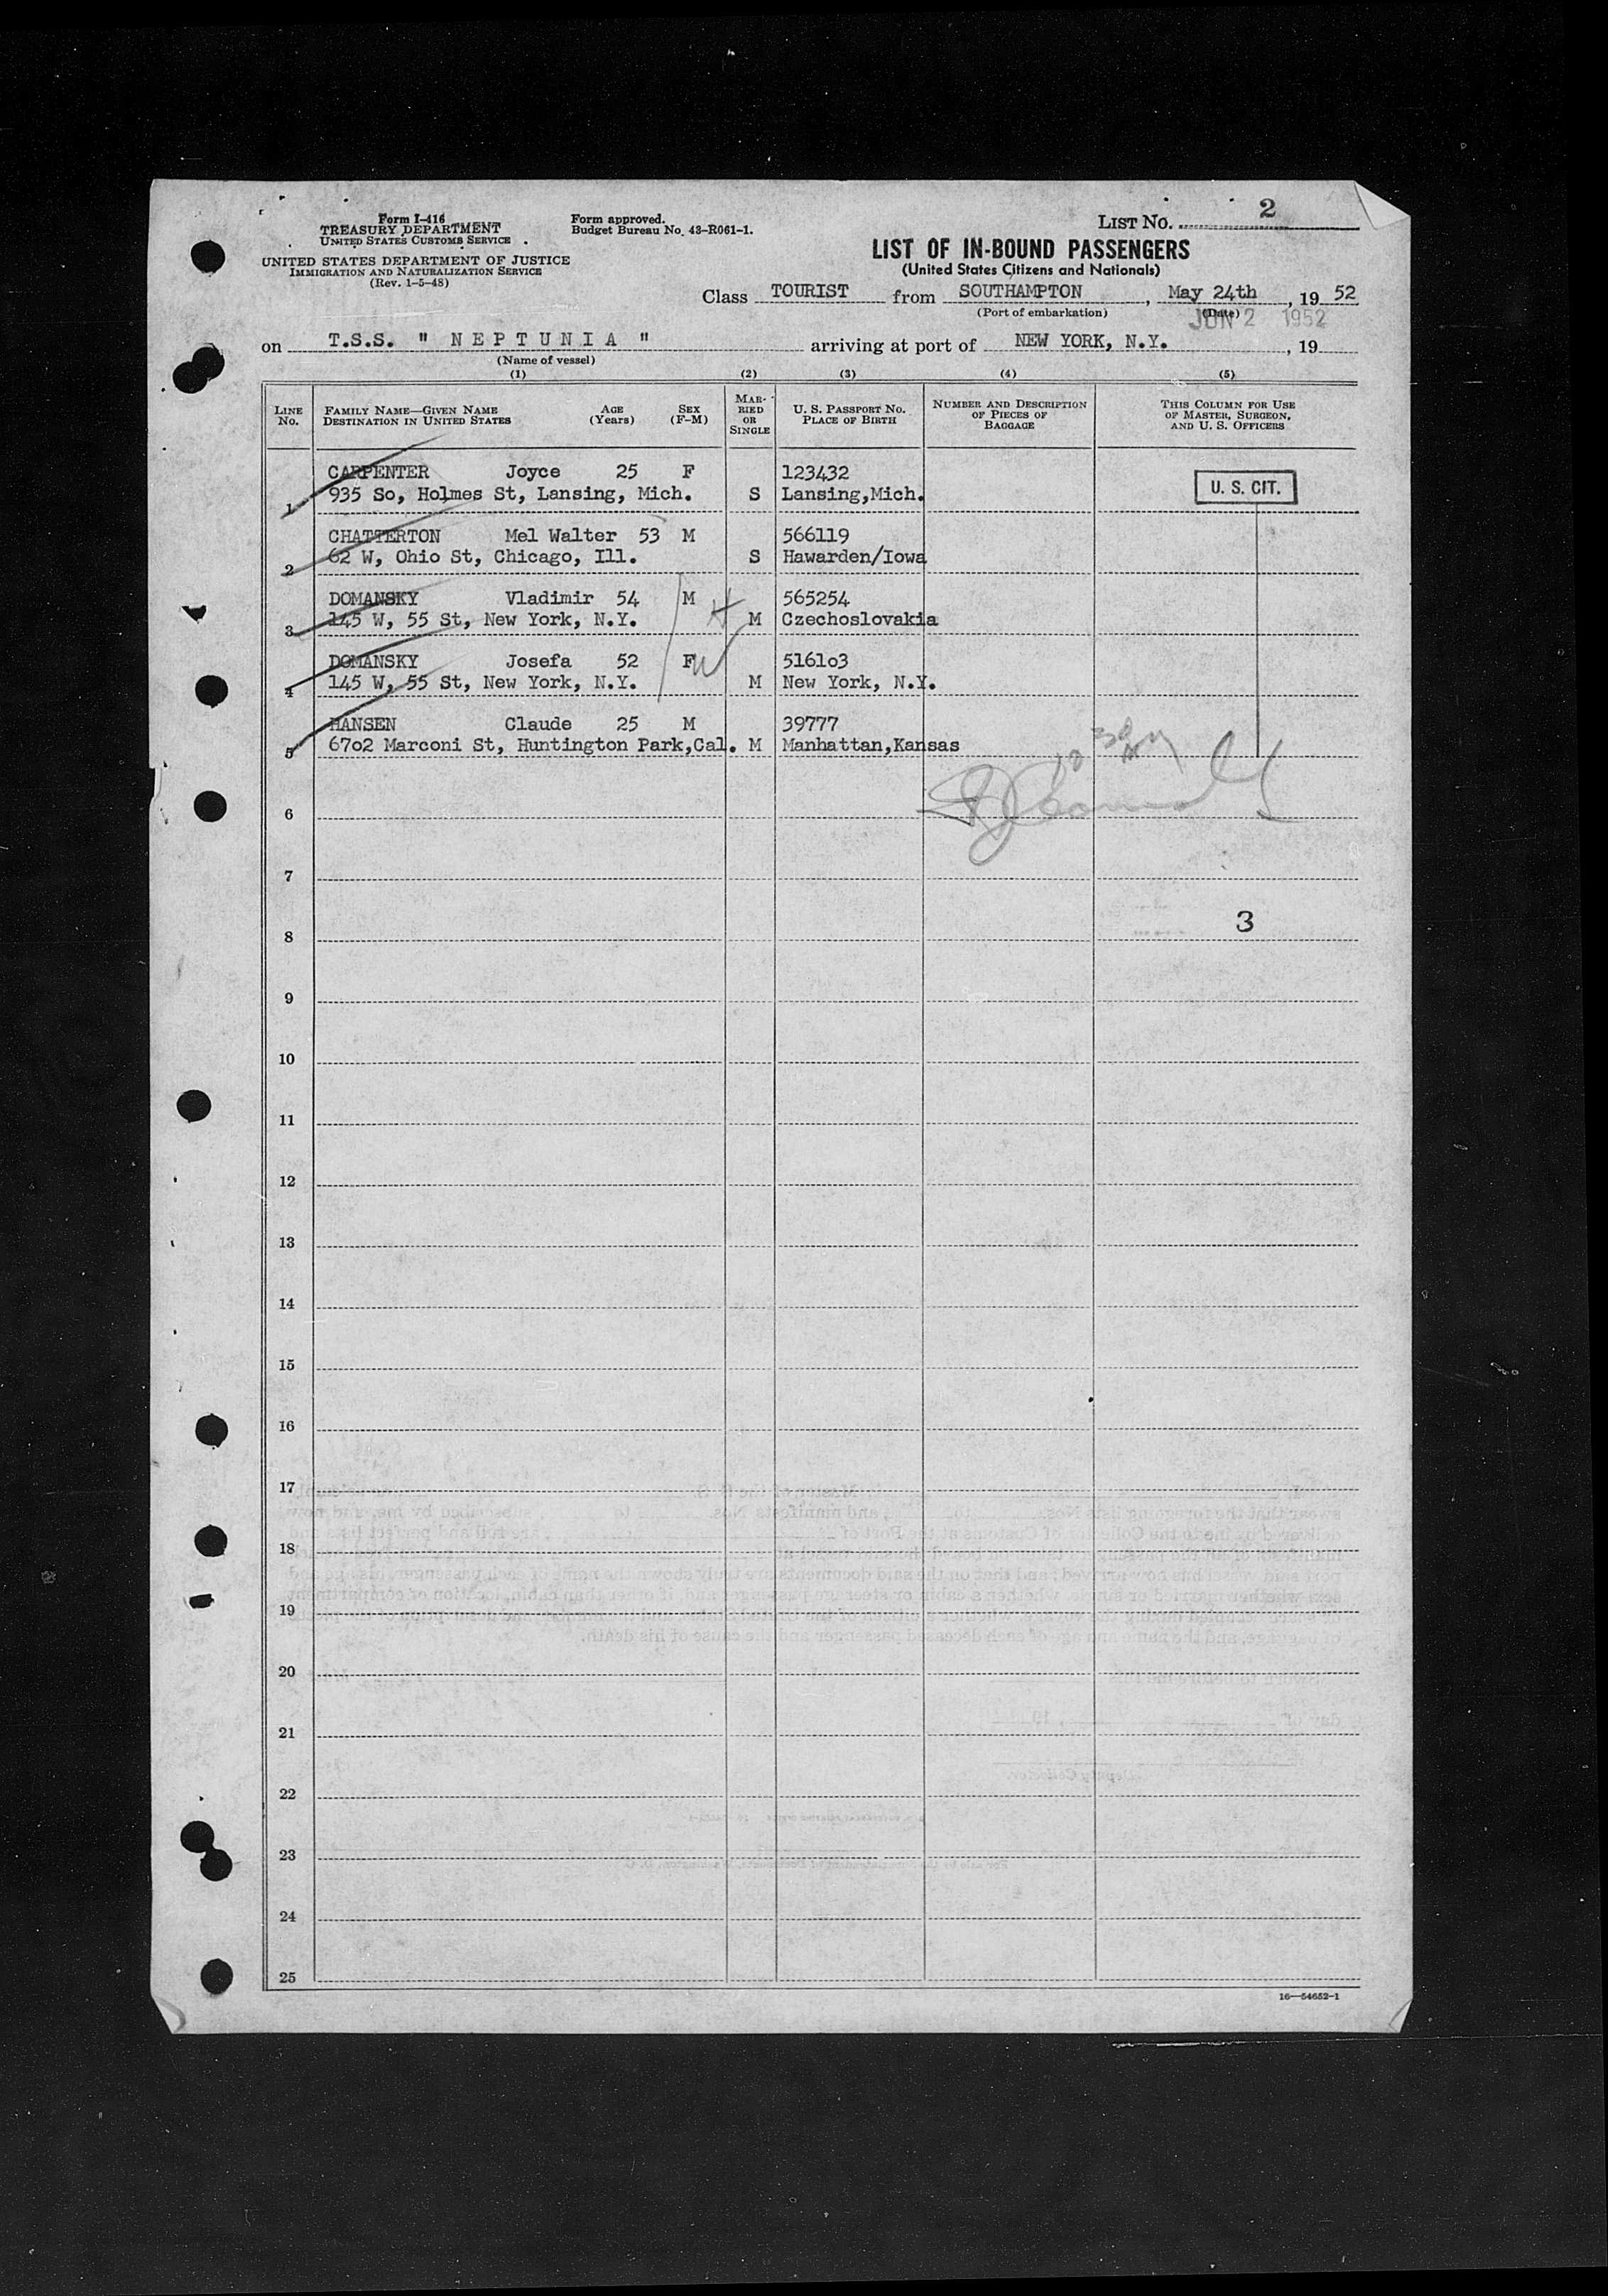 Form I-416
TREASURY DEPARTMENT
UNITED STATES CUSTOMS SERVICE
UNITED STATES DEPARTMENT OF JUSTICE
IMMIGRATION AND NATURALIZATION SERVICE
(Rev. 1-5-48)
Form approved.
Budget Bureau No. 43-R061-1.
LIST NO. 2
LIST OF IN-BOUND PASSENGERS
(United States Citizens and Nationals)
Class TOURIST from SOUTHAMPTON, May 24th, 19 52
(Port of embarkation) (Date)
JUN 2 1952
on T.S.S. " N E P T U N I A " arriving at port of NEW YORK, N.Y., 19
(Name of vessel)
(1) (2) (3) (4) (5)
LINE NO. FAMILY NAME—GIVEN NAME DESTINATION IN UNITED STATES AGE (Years) SEX (F-M) MARRIED OR SINGLE U. S. PASSPORT NO. PLACE OF BIRTH NUMBER AND DESCRIPTION OF PIECES OF BAGGAGE THIS COLUMN FOR USE OF MASTER, SURGEON, AND U. S. OFFICERS
CARPENTER Joyce 25 F 123432
1 935 So, Holmes St, Lansing, Mich. S Lansing,Mich. U. S. CIT.
CHATTERTON Mel Walter 53 M 566119
2 62 W, Ohio St, Chicago, Ill. S Hawarden/Iowa
DOMANSKY Vladimir 54 M H 565254
3 145 W, 55 St, New York, N.Y. M Czechoslovakia
DOMANSKY Josefa 52 F W 5161o3
4 145 W, 55 St, New York, N.Y. M New York, N.Y.
HANSEN Claude 25 M 39777
5 67o2 Marconi St, Huntington Park,Cal. M Manhattan,Kansas
6
7
8 3
9
10
11
12
13
14
15
16
17
18
19
20
21
22
23
24
25
16—54652-1